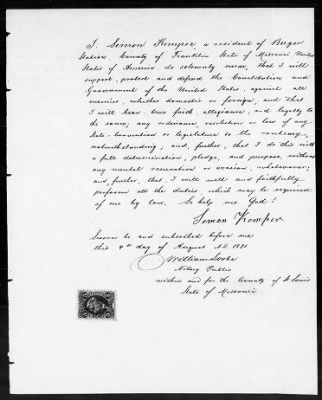 I, Simon Kemper a resident of Berger
Station, County of Franklin State of Missouri United
States of America, do solemnly swear, that I will
support, protect and defend the Constitution and
Government of the United States, against all
enemies, whether domestic or foreign, and that
I will bear true faith, allegiance, and loyalty to
the same, any ordinance, resolution or law of any
State, Convention or legislature to the contrary
notwithstanding; and, further, that I do this with
a full determination, pledge, and purpose, without
any mental reservation or evasion, whatsoever;
and, further, that, I will well and faithfully
perform all the duties, which may be required
of me by law. So help me God!
Simon Kemper
Sworn to and subscribed before me
this 4th day of August A.D. 1871
William
Notary Public
within and for the County of St Louis
State of Missouri